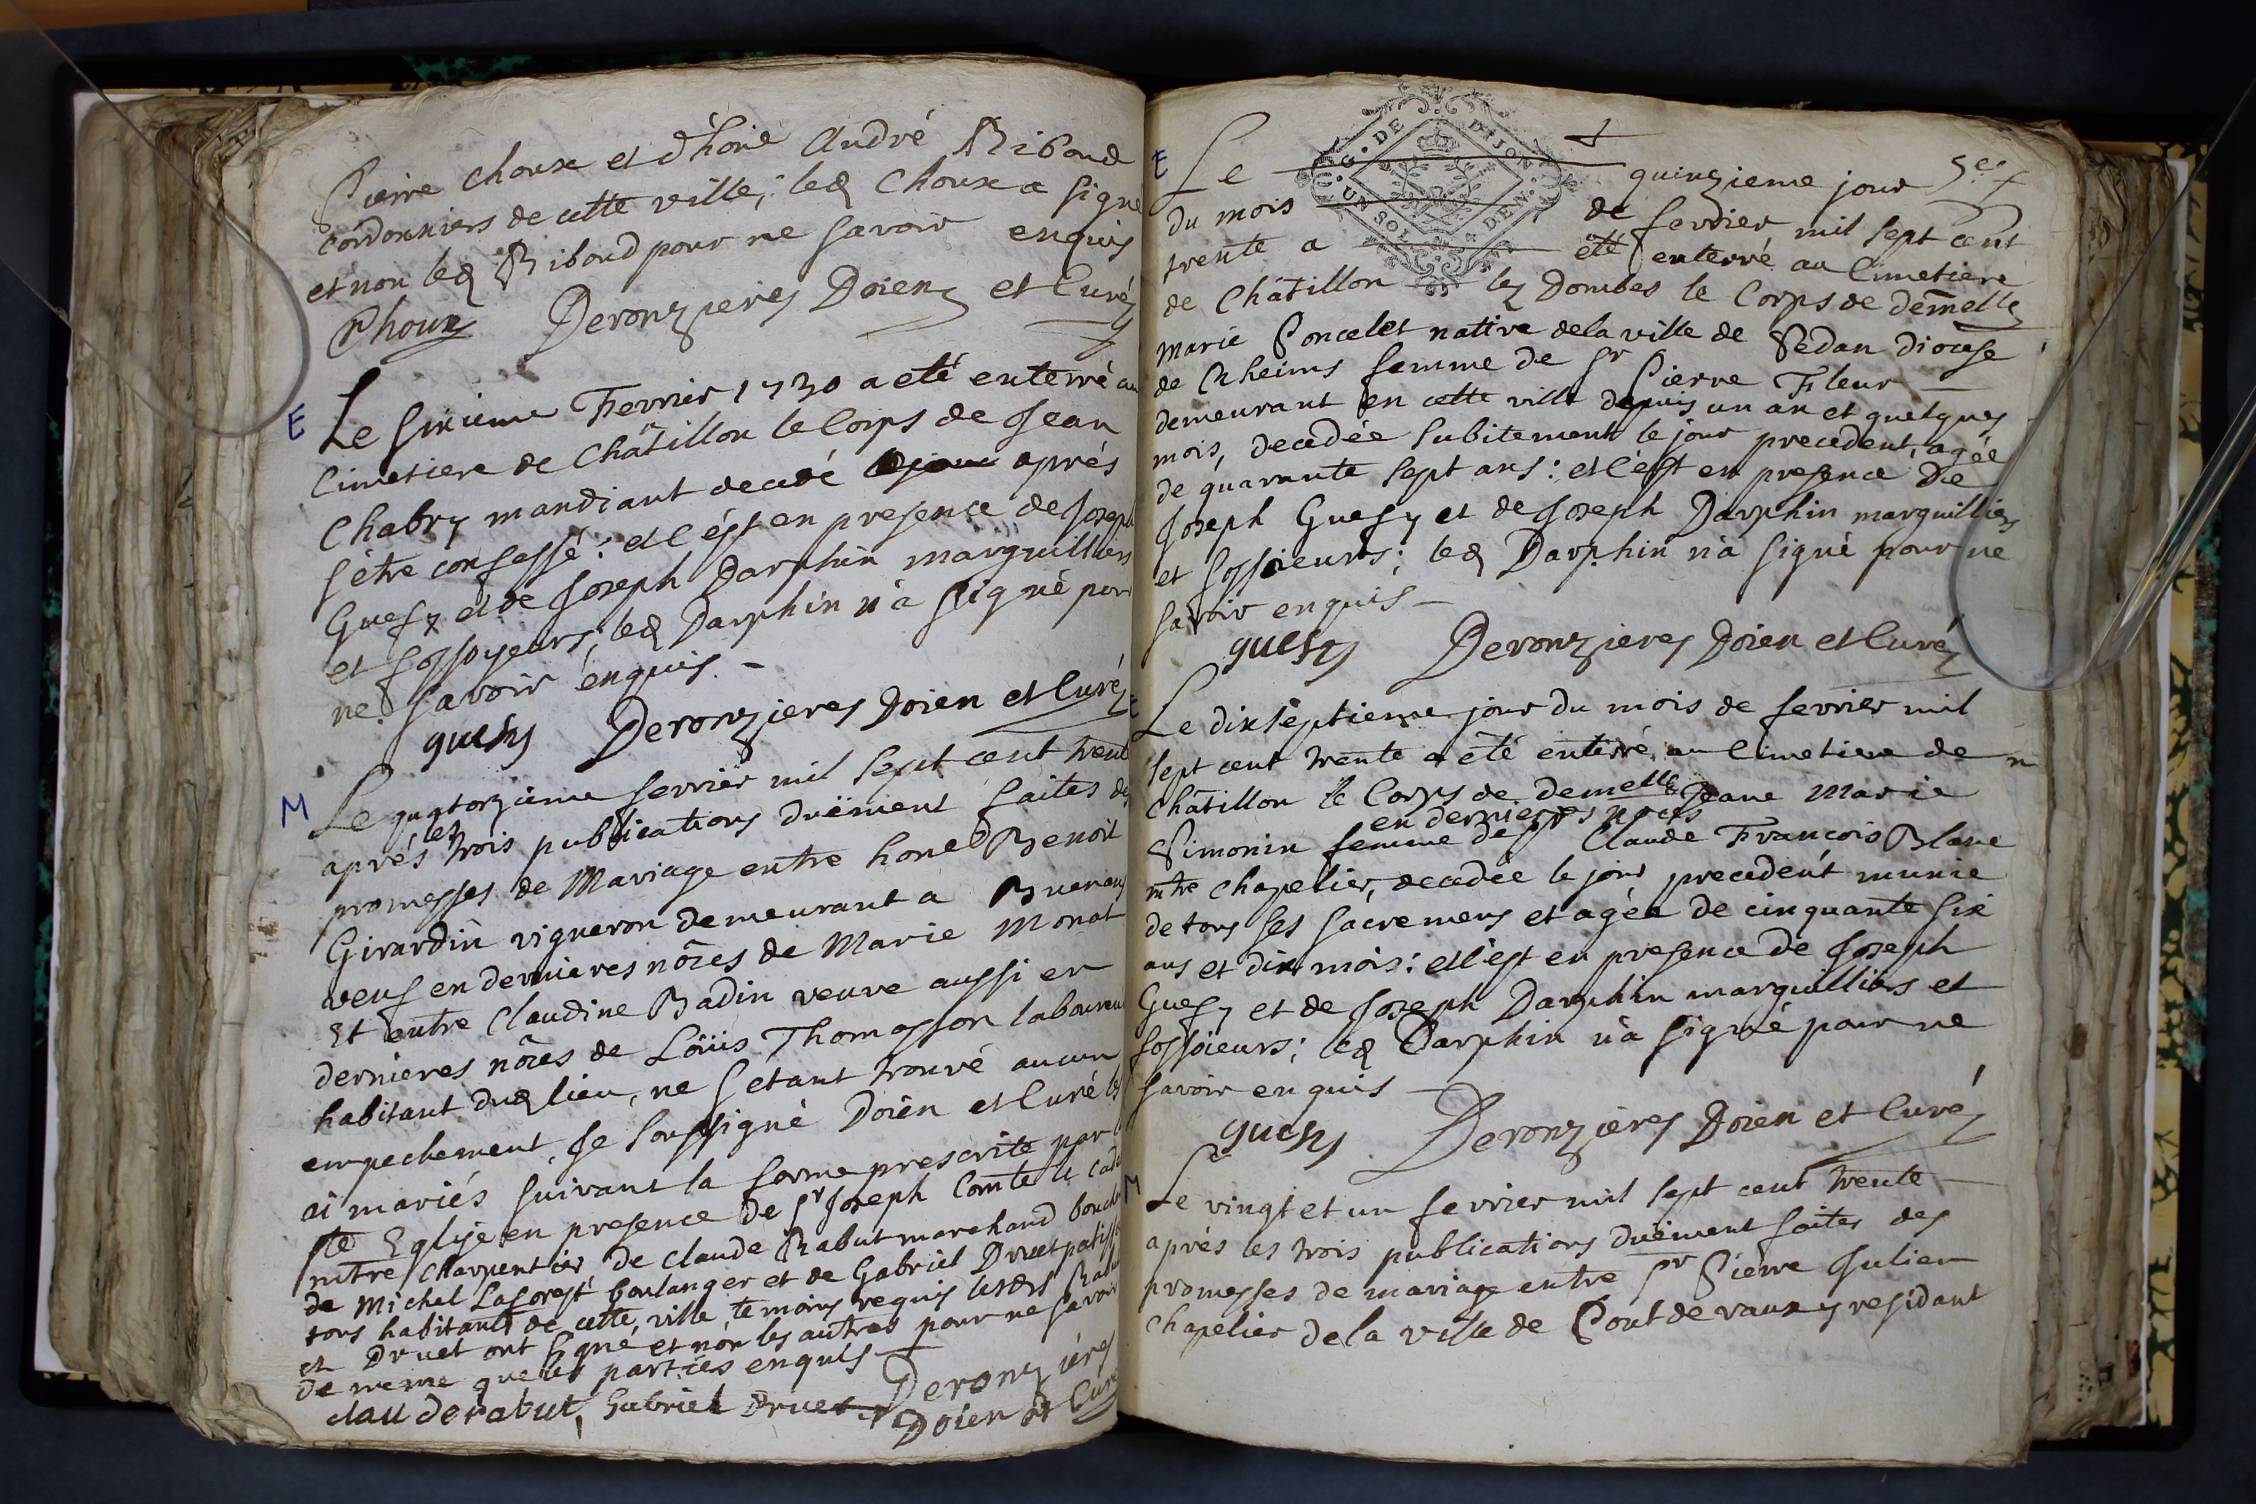 Pierre Choux et d'hone André Riboud
cordonniers de cette ville; led Choux a signé
et non led Riboud pour ne savoir enquis
Choux Deronzieres Doien et Curé
E
Le sixieme Fevrier 1730 a eté enterré au
Cimetiere de Châtillon le Corps de Jean
Chabry mandiant decedé aprés
s'être confessé: et c'ést en presence de Joseph
Guesy et de Joseph Darphin marguilliers
et fossoyeurs; led Darphin n'a signé pour
ne savoir enquis. -
guesy Deronzieres Doien et Curé
M
Le quatorzieme fevrier mil sept cent trente
aprés les trois publications duëment faites des
promesses de Mariage entre hone Benoit
Girardin vigneron demeurant a Buenans
veuf en dernieres nôces de Marie Monat
Et entre Claudine Badin veuve aussi en
dernieres nôces de Loüis Thomasson laboureur
habitant dud lieu, ne s'etant trouvé aucun
empechement, Je soussigné Doien et Curé les
ai mariés suivant la forme prescrite par la
ste Eglise en presence de sr Joseph Comte le cadet
mtre charpentier de Claude Rabut marchand boucher
de Michel Laforest boulanger et de Gabriel Druet patissier
tous habitants de cette ville temoins requis lesdts Rabut
et Druet ont signé et non les autres pour ne savoir
de meme que les parties enquis
claude rabut, Gabriel Druet Deronzieres
Doien et Curé
G. DE DIJON
UN SOL DEN.
E
Le quinzieme jour 5e f
du mois de fevrier mil sept cent
trente a eté enterré au Cimetiere
de Châtillon les Dombes le Corps de demelle
Marie Poncelet native de la ville de Sedan Diocese
de Rheims femme de sr Pierre Fleur
demeurant en cette ville depuis un an et quelques
mois, decedée subitement le jour precedent, agée
de quarante sept ans: et c'est en presence de
Joseph Guesy et de Joseph Darphin marguilliers
et fossoieurs; led Darphin n'a signé pour ne
savoir enquis -
guesy Deronzieres Doien et Curé
E
Le dixseptieme jour du mois de fevrier mil
sept cent trente a été enterré au Cimetiere de
Châtillon le Corps de demelle Jeane Marie
en dernieres noces
Simonin femme de sr Claude François Blanc
mtre chapelier, decedée le jour precedent munie
de tous ses sacremens et agée de cinquante six
ans et dix mois: et c'est en presence de Joseph
Guesy et de Joseph Darphin marguilliers et
fossoieurs; led Darphin n'a signé pour ne
savoir enquis -
guesy Deronzieres Doien et Curé
M
Le vingt et un fevrier mil sept cent trente
aprés les trois publications duëment faites des
promesses de mariage entre sr Pierre Julien
chapelier de la ville de Pontdevaux y residant